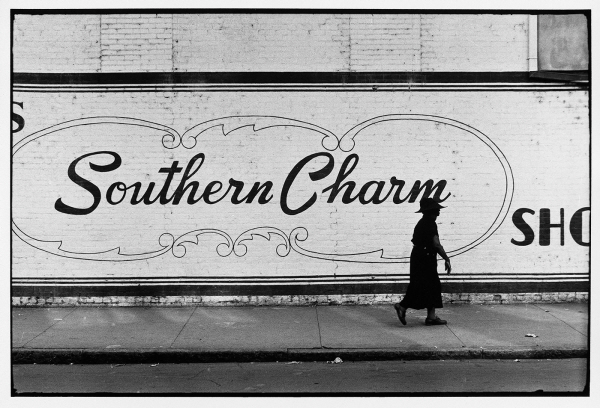 S
Southern Charm
SHO